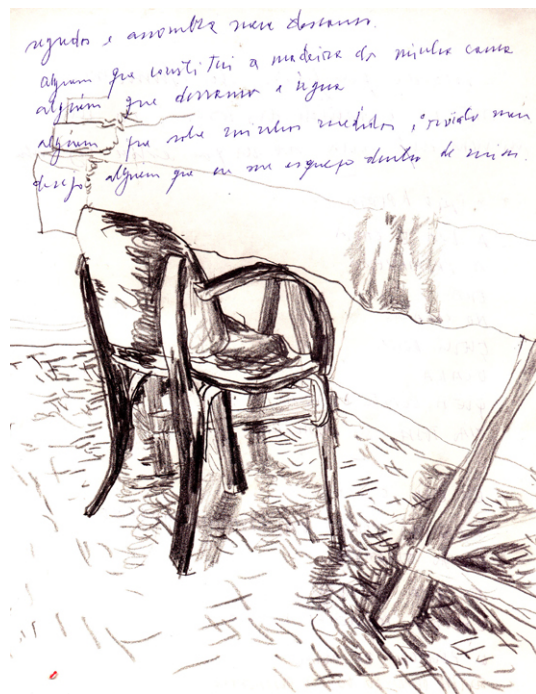 segredos e assombra meu descanso.
alguém que constitui a madeira da minha cama
alguém que descansa a água
alguém que sabe minhas medidas,
desejo alguém que eu me esqueço dentro de mim.